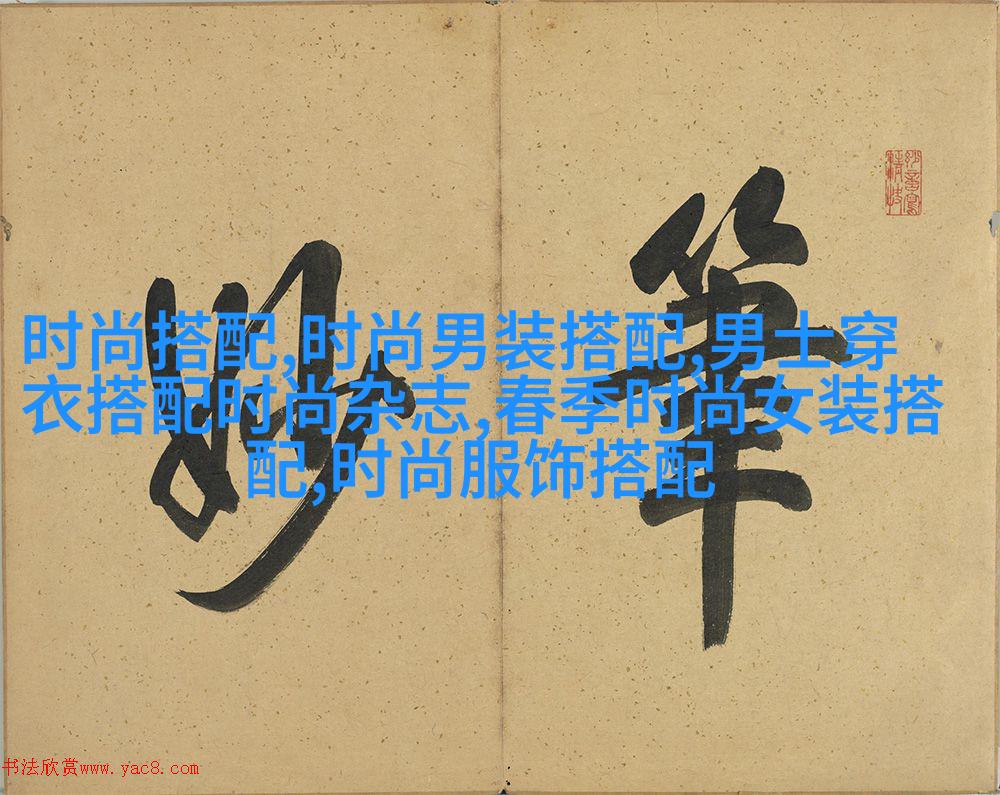 筆
妙
时尚搭配,时尚男装搭配,男士穿
衣搭配时尚杂志,春季时尚女装搭
配,时尚服饰搭配
书法欣赏www.yac8.com